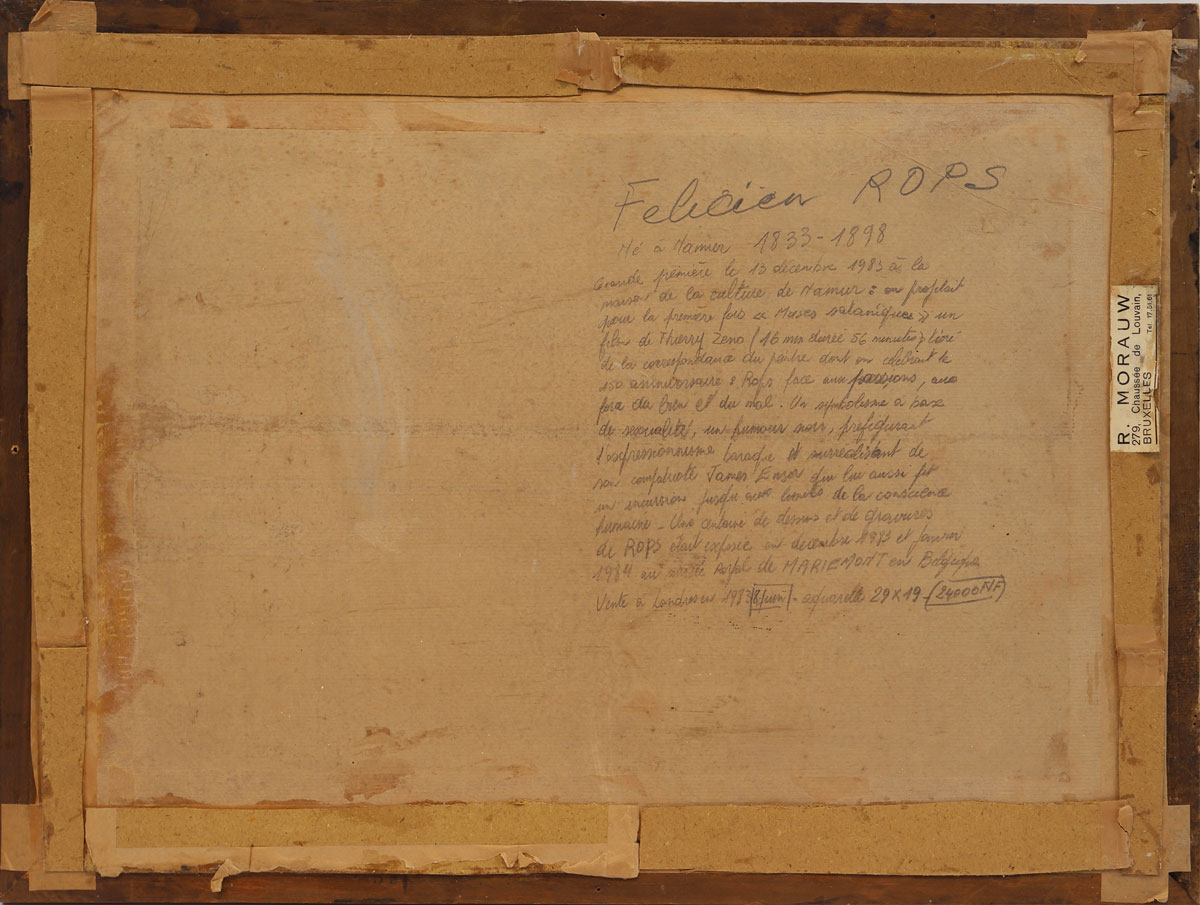 Felicien ROPS
Né à Namur 1833-1898
Grande première le 13 décembre 1983 à la
maison de la culture de Namur : on projetait
pour la première fois « Muses sataniques » un
film de Thierry Zeno (16 mm durée 56 minutes) tiré
de la correspondance du peintre dont on célébrait le
150 anniversaire : Rops face aux passions, aux
fors du bien et du mal. Un symbolisme à base
de sexualité, un humour noir, préfigurant
l'expressionnisme baroque et surréalisant de
son compatriote James Ensor qui lui aussi fit
un incursion jusqu'aux limites de la conscience
humaine - Une centaine de dessins et de gravures
de ROPS était exposée en décembre 1983 et Janvier
1984 au musée Royal de MARIEMONT en Belgique
Vente à Londres en 1983 8 juin - aquarelle 29 x 19 - (24000NF)
R. MORAUW
279, Chaussée de Louvain,
BRUXELLES Tel. 17.51.62